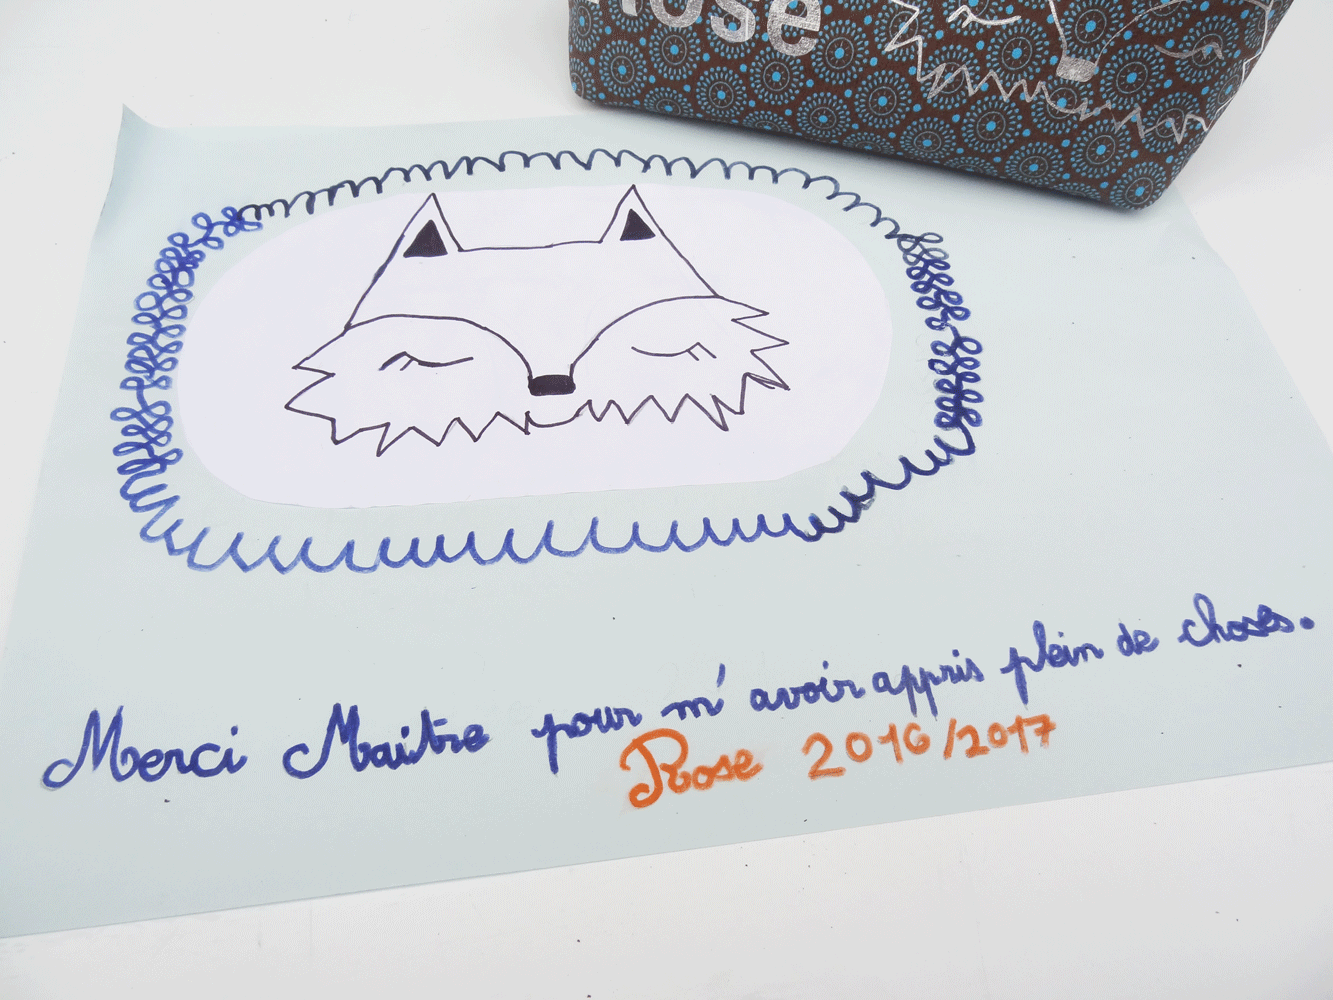 Rose
Merci Maitre pour m'avoir appris plein de choses.
Rose 2016/2017